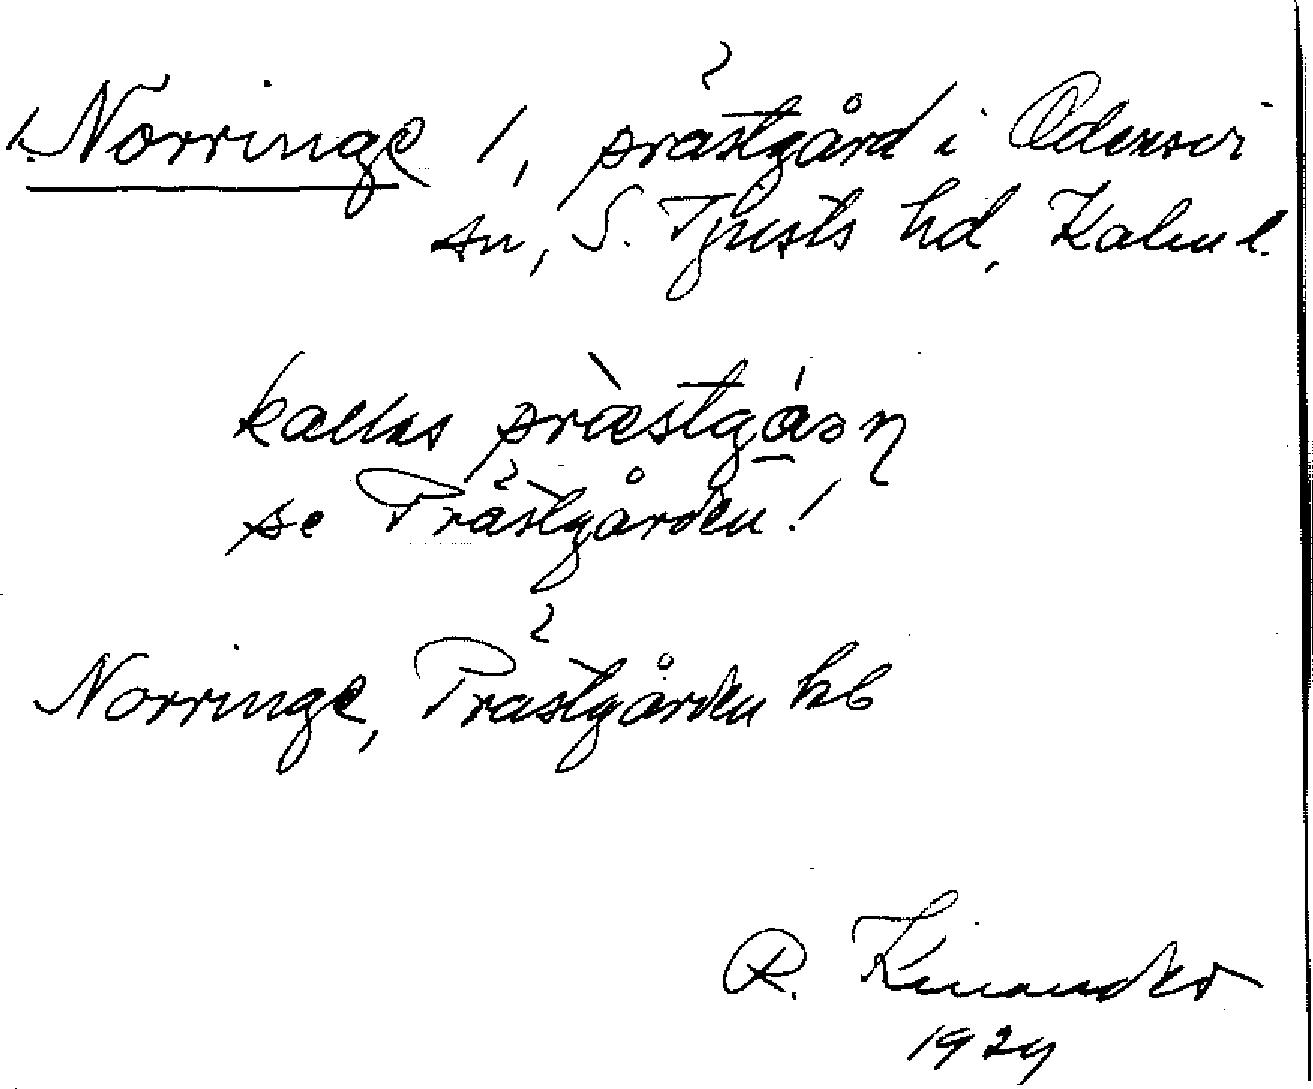 1. Norringe 1, prästgård i Odensvi
sn, S. Tjusts hd, Kalm l.
kallas præstgɑ́ɔη
se Prästgården!
Norringe, Prästgården hb
R. Kinander
1924